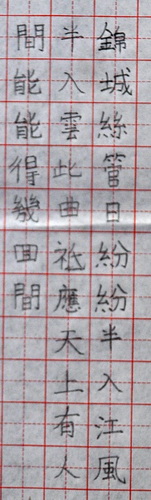 錦城絲管日紛紛半入江風
半入雲此曲祗應天上有人
間能能得幾回間